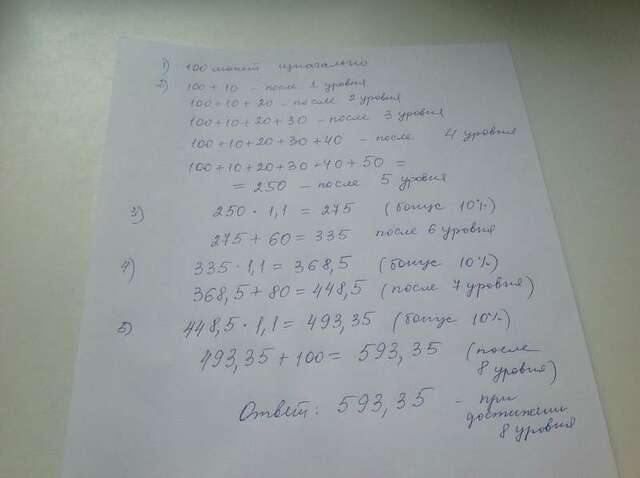 1) 100 монет изначально
2) 100 + 10 - после 1 уровня
100 + 10 + 20 - после 2 уровня
100 + 10 + 20 + 30 - после 3 уровня
100 + 10 + 20 + 30 + 40 - после 4 уровня
100 + 10 + 20 + 30 + 40 + 50 =
= 250 - после 5 уровня
3) 250 · 1,1 = 275 (бонус 10%)
275 + 60 = 335 после 6 уровня
4) 335 · 1,1 = 368,5 (бонус 10%)
368,5 + 80 = 448,5 (после 7 уровня)
5) 448,5 · 1,1 = 493,35 (бонус 10%)
493,35 + 100 = 593,35 (после
8 уровня)
Ответ: 593,35 - при
достижении
8 уровня